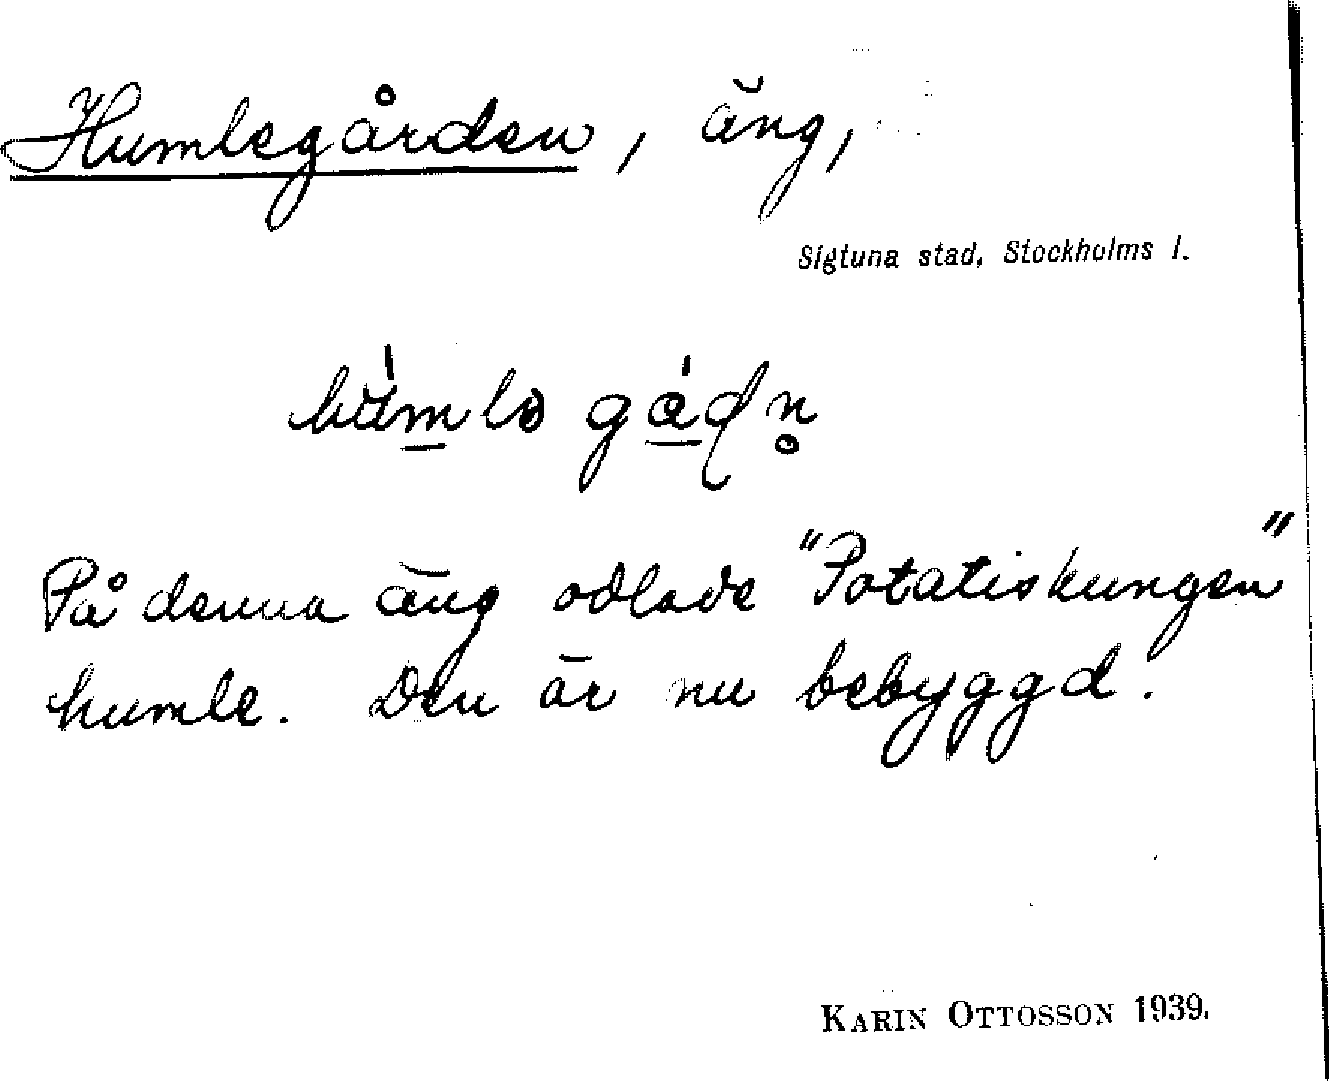 Humlegården, äng,
Sigtuna stad, Stockholms l.
På denna äng odlade "Potatiskungen"
humle. Den är nu bebyggd.
KARIN OTTOSSON 1939.